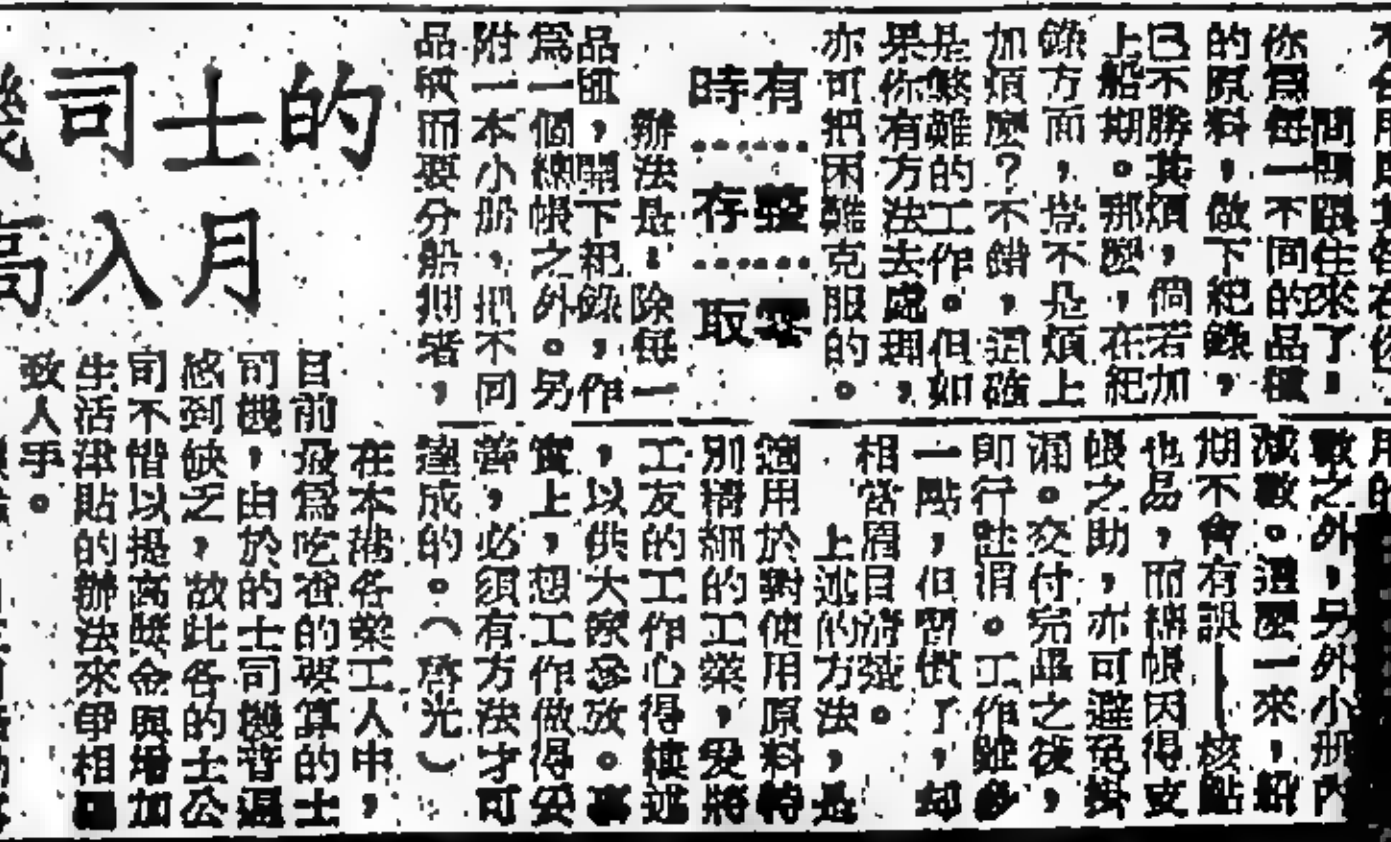 問題跟住來了。
你爲每一不同的品種
的原料，做下紀錄，
已不勝其煩，倘若加
上船期。那麼，在紀
錄方面，豈不是煩上
加煩麼？不錯，這確
是繁難的工作。但如
果你有方法去處理，
亦可把困難克服的。
有時
整存
零取
辦法是：除每一
品種，開下紀錄，作
爲一個總帳之外。另
附一本小册，把不同
品種而要分船期者，
數之外，另外小册內
減數。這麼一來，船
期不會有誤——核點
也易，而總帳因得支
帳之助，亦可避免掛
漏。交付完畢之後，
即行註消。工作雖多
一點，但習慣了，却
相當眉目清楚。
上述的方法，是
適用於對使用原料特
別精細的工業，爰將
工友的工作心得縷述
，以供大家參攷。事
實上，想工作做得妥
善，必須有方法才可
達成的。（光）
的士司機
月入高
在本港各業工人中，
目前最爲吃香的要算的士
司機，由於的士司機普遍
感到缺乏，故此各的士公
司不惜以提高獎金與增加
生活津貼的辦法來爭相
致人手。